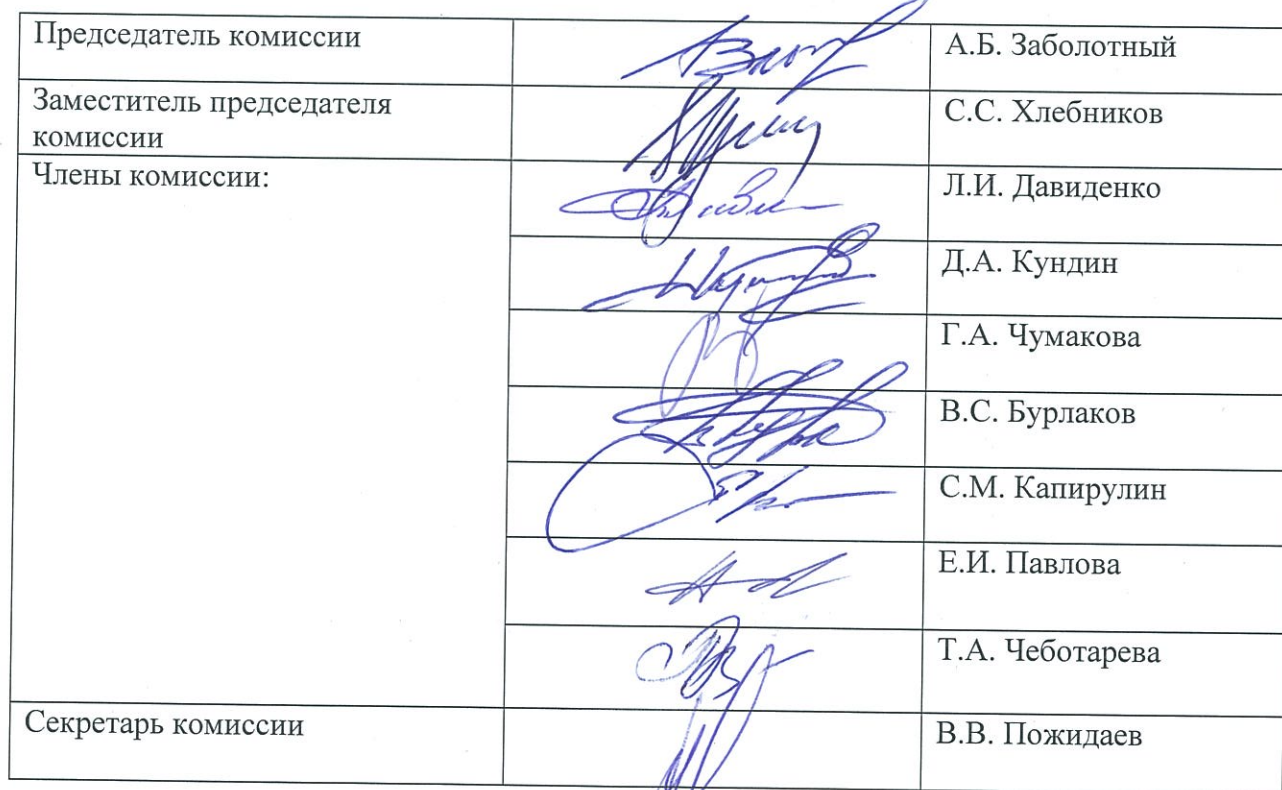 Председатель комиссии
А.Б. Заболотный
Заместитель председателя
комиссии
С.С. Хлебников
Члены комиссии:
Л.И. Давиденко
Д.А. Кундин
Г.А. Чумакова
В.С. Бурлаков
С.М. Капирулин
Е.И. Павлова
Т.А. Чеботарева
Секретарь комиссии
В.В. Пожидаев